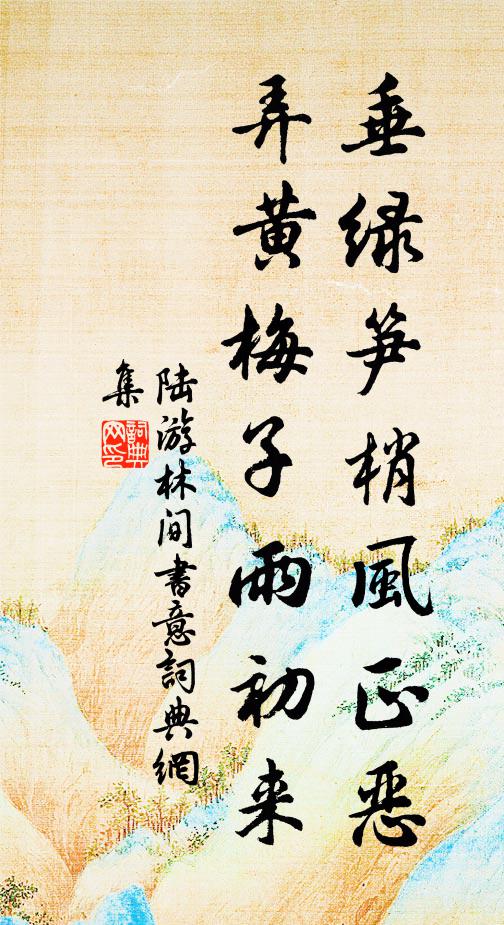 垂绿笋梢風正恶
弄黄梅子雨初来
陆游林间書意詞典網
集
詞典网印